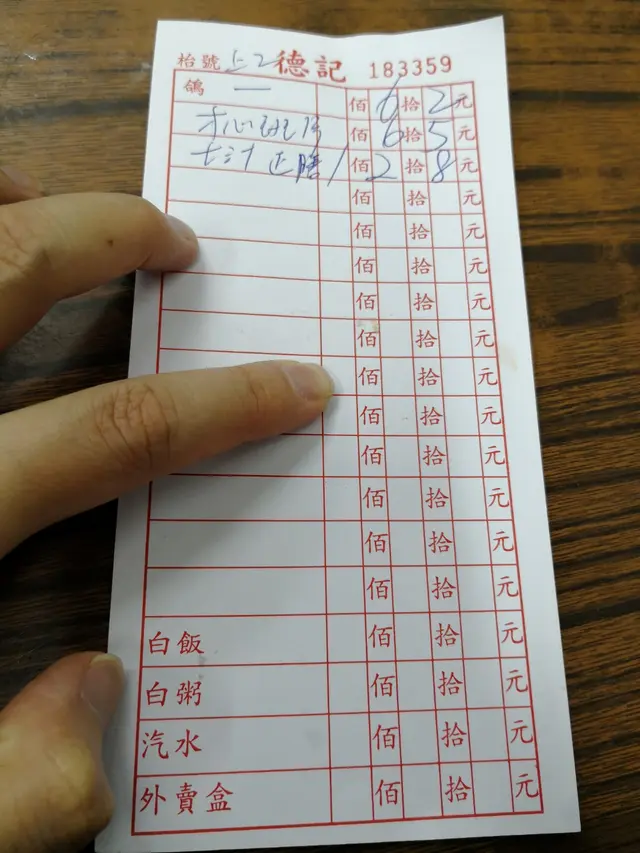 枱號 上2 德記 183359
鴿 一 佰 6 拾 2 元
佰 6 拾 5 元
1 佰 2 拾 8 元
佰 拾 元
佰 拾 元
佰 拾 元
佰 拾 元
佰 拾 元
佰 拾 元
佰 拾 元
佰 拾 元
佰 拾 元
佰 拾 元
佰 拾 元
白飯 佰 拾 元
白粥 佰 拾 元
汽水 佰 拾 元
外賣盒 佰 拾 元